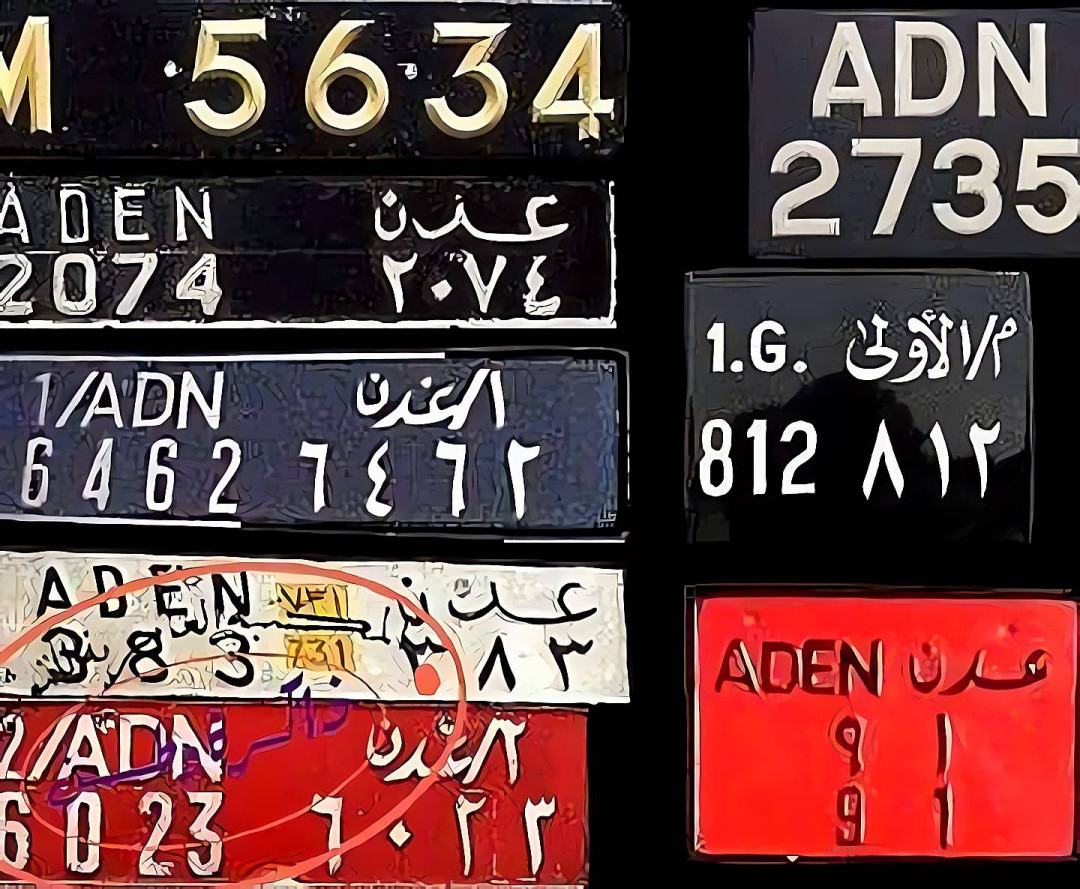 M 5634
ADEN عدن
2074 ٢٠٧٤
1/ADN ١/عدن
6462 ٦٤٦٢
ADEN ٧٣١ عدن
383 731 ٣٨٣
2/ADN ٢/عدن
6023 ٦٠٢٣
ADN
2735
1.G. م/الأولى
812 ٨١٢
ADEN عدن
٩ ١
9 1